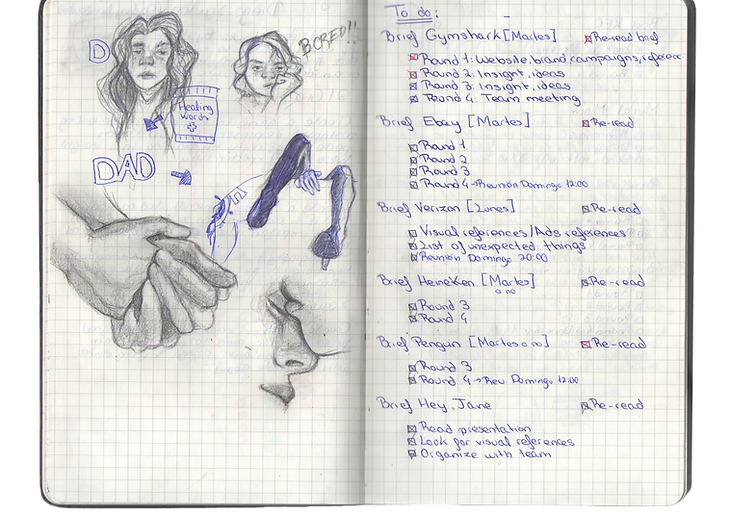 D
BORED!!
Healing
words
DAD
To do:
Brief Gymshark [Martes] Re-read brief
Round 1: Website, brand campaigns, referenc
Round 2: Insight, ideas
Round 3: Insight, ideas
Round 4: Team meeting
Brief Ebay [Martes] Re-read
Round 1
Round 2
Round 3
Round 4 → Reunión Domingo 12:00
Brief Verizon [Lunes] Re-read
Visual references/Ads references
List of unexpected things
Reunión Domingo 20:00
Brief Heineken [Martes] Re-read
Round 3
Round 4
Brief Penguin [Martes Re-read
Round 3
Round 4 → Reu. Domingo 12:00
Brief Hey, Jane Re-read
Read presentation
Look for visual references
Organize with team